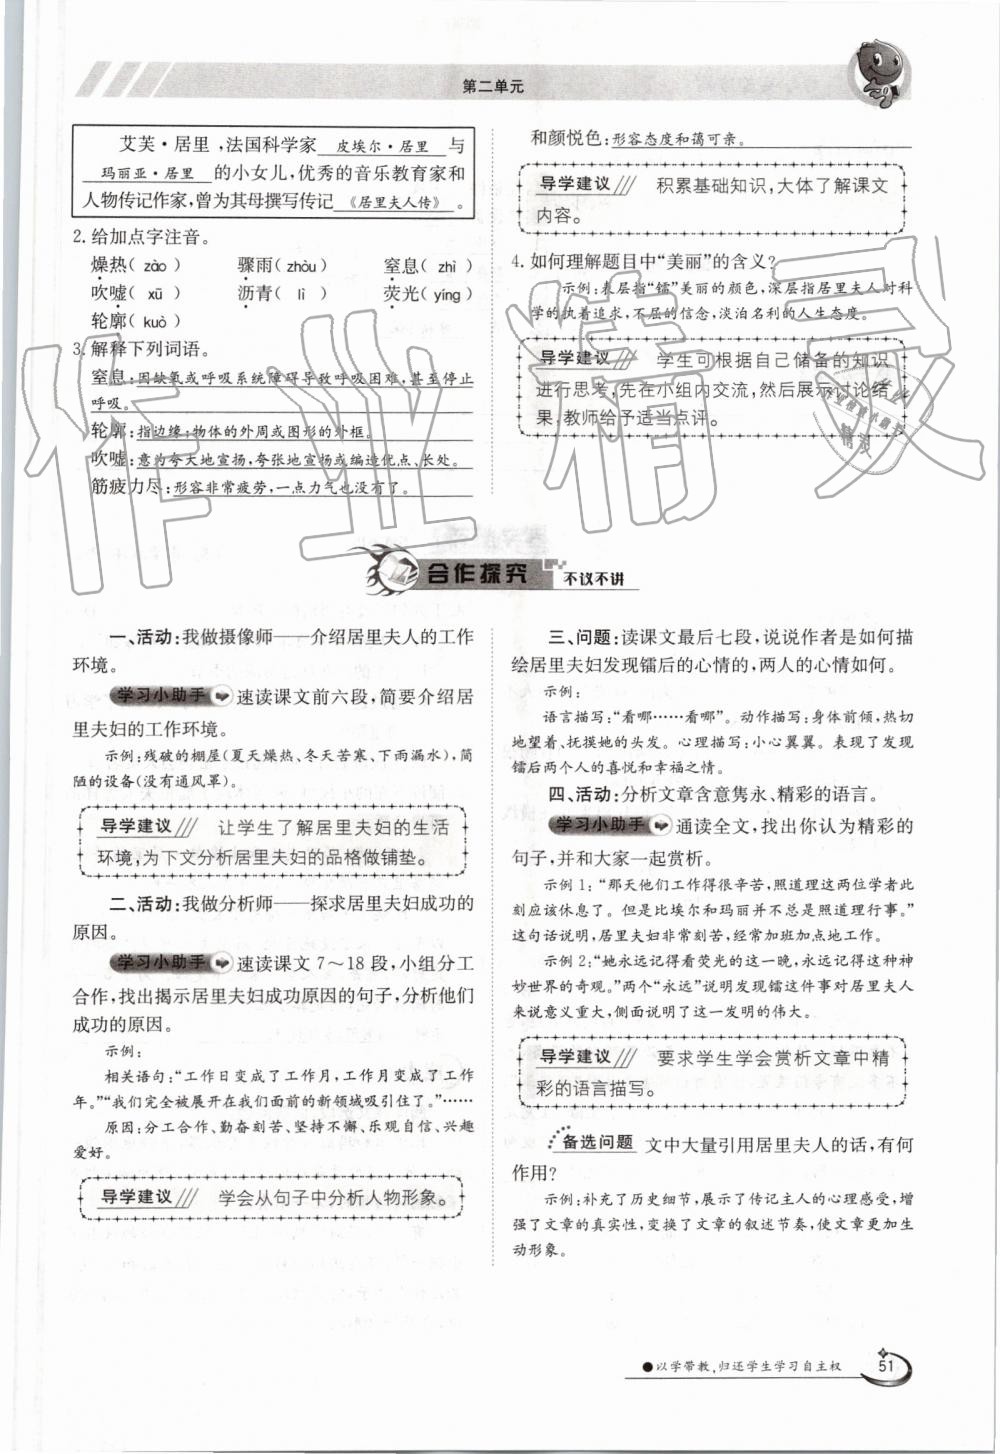 第二单元
艾芙·居里,法国科学家 皮埃尔·居里 与
玛丽亚·居里 的小女儿,优秀的音乐教育家和
人物传记作家,曾为其母撰写传记 《居里夫人传》 。
2. 给加点字注音。
燥热( zào ) 骤雨( zhòu ) 窒息( zhì )
吹嘘( xū ) 沥青( lì ) 荧光( yíng )
轮廓( kuò )
3. 解释下列词语。
窒息:因缺氧或呼吸系统障碍导致呼吸困难,甚至停止
呼吸。
轮廓:指边缘;物体的外周或图形的外框。
吹嘘:意为夸大地宣扬,夸张地宣扬或编造优点、长处。
筋疲力尽:形容非常疲劳,一点力气也没有了。
和颜悦色:形容态度和蔼可亲。
导学建议 积累基础知识,大体了解课文
内容。
4. 如何理解题目中“美丽”的含义?
示例:表层指“镭”美丽的颜色,深层指居里夫人对科
学的执着追求,不屈的信念,淡泊名利的人生态度。
导学建议 学生可根据自己储备的知识
进行思考,先在小组内交流,然后展示讨论结
果,教师给予适当点评。
作业精灵
合作探究 不议不讲
一、活动:我做摄像师——介绍居里夫人的工作
环境。
学习小助手 速读课文前六段,简要介绍居
里夫妇的工作环境。
示例:残破的棚屋(夏天燥热、冬天苦寒、下雨漏水),简
陋的设备(没有通风罩)。
导学建议 让学生了解居里夫妇的生活
环境,为下文分析居里夫妇的品格做铺垫。
二、活动:我做分析师——探求居里夫妇成功的
原因。
学习小助手 速读课文 7～18 段,小组分工
合作,找出揭示居里夫妇成功原因的句子,分析他们
成功的原因。
示例:
相关语句:“工作日变成了工作月,工作月变成了工作
年。”“我们完全被展开在我们面前的新领域吸引住了。”……
原因:分工合作、勤奋刻苦、坚持不懈、乐观自信、兴趣
爱好。
导学建议 学会从句子中分析人物形象。
三、问题:读课文最后七段,说说作者是如何描
绘居里夫妇发现镭后的心情的,两人的心情如何。
示例:
语言描写:“看哪……看哪”。动作描写:身体前倾,热切
地望着、抚摸她的头发。心理描写:小心翼翼。表现了发现
镭后两个人的喜悦和幸福之情。
四、活动:分析文章含意隽永、精彩的语言。
学习小助手 通读全文,找出你认为精彩的
句子,并和大家一起赏析。
示例 1:“那天他们工作得很辛苦,照道理这两位学者此
刻应该休息了。但是比埃尔和玛丽并不总是照道理行事。”
这句话说明,居里夫妇非常刻苦,经常加班加点地工作。
示例 2:“她永远记得看荧光的这一晚,永远记得这种神
妙世界的奇观。”两个“永远”说明发现镭这件事对居里夫人
来说意义重大,侧面说明了这一发明的伟大。
导学建议 要求学生学会赏析文章中精
彩的语言描写。
备选问题 文中大量引用居里夫人的话,有何
作用?
示例:补充了历史细节,展示了传记主人的心理感受,增
强了文章的真实性,变换了文章的叙述节奏,使文章更加生
动形象。
●以学带教,归还学生学习自主权
51